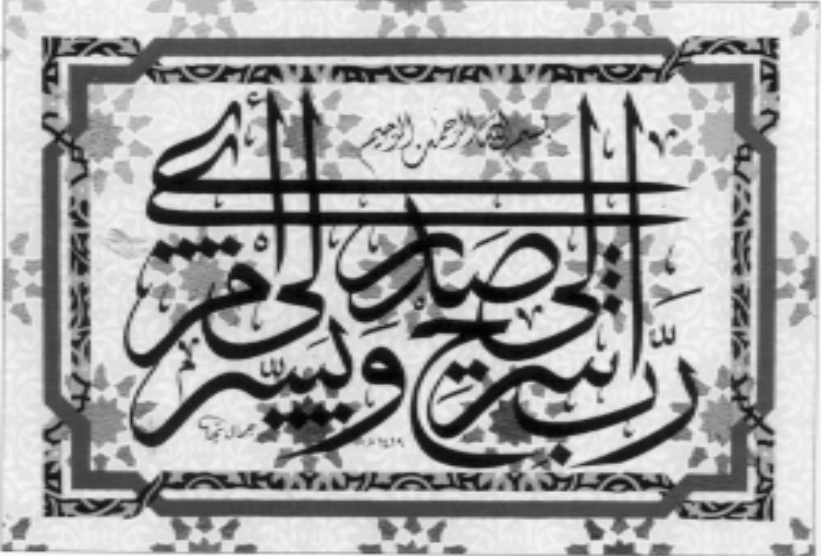 بسم الله الرحمن الرحيم
رب اشرح لي صدري ويسر لي أمري
١٤١٩